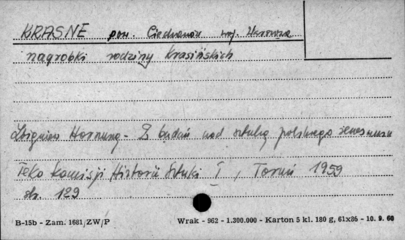 KRASNE pow. Ciechanów woj. Warszawa
nagrobki rodziny Krasińskich
Zbigniew Hornung - Z badań nad rzeźbą polskiego renesansu
Teka Komisji Historii Sztuki I, Toruń 1959
str. 129
B-15b - Zam. 1681/ZW/P Wrak - 962 - 1.300.000 - Karton 5 kl. 180 g, 61x86 - 10. 9. 60